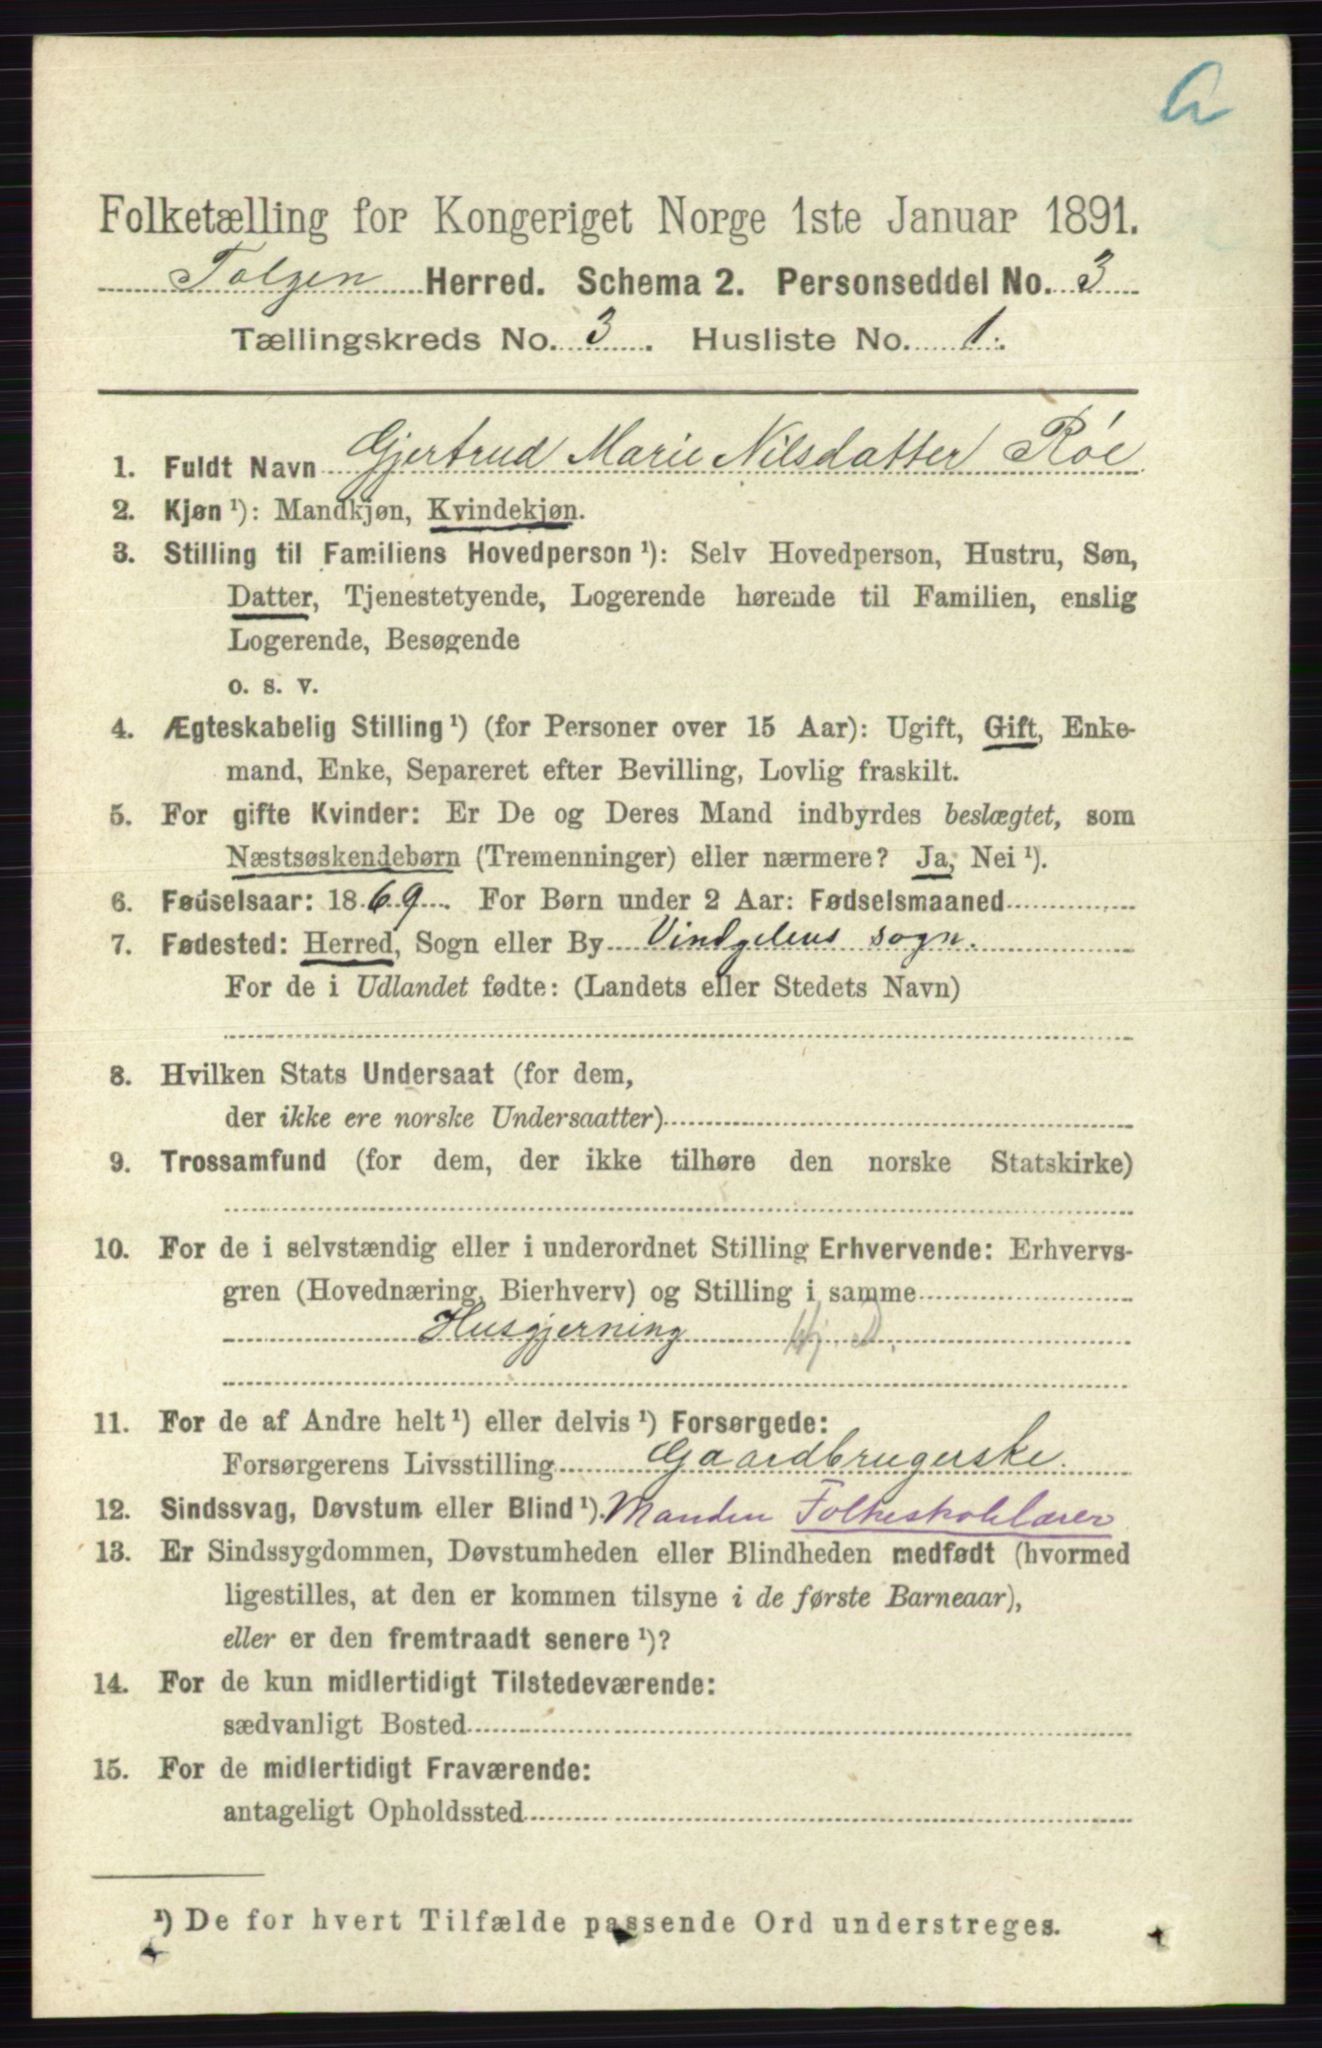 G
Folketælling for Kongeriget Norge 1ste Januar 1891.
Tolgen Herred. Schema 2. Personseddel No. 3
Tællingskreds No. 3. Husliste No. 1.
1. Fuldt Navn Gjertrud Marie Nilsdatter Røe
2. Kjøn ¹): Mandkjøn, Kvindekjøn.
3. Stilling til Familiens Hovedperson ¹): Selv Hovedperson, Hustru, Søn,
Datter, Tjenestetyende, Logerende hørende til Familien, enslig
Logerende, Besøgende
o. s. v.
4. Ægteskabelig Stilling ¹) (for Personer over 15 Aar): Ugift, Gift, Enke-
mand, Enke, Separeret efter Bevilling, Lovlig fraskilt.
5. For gifte Kvinder: Er De og Deres Mand indbyrdes beslægtet, som
Næstsøskendebørn (Tremenninger) eller nærmere? Ja, Nei ¹).
6. Fødselsaar: 1869. For Børn under 2 Aar: Fødselsmaaned
7. Fødested: Herred, Sogn eller By Vindgelens sogn.
For de i Udlandet fødte: (Landets eller Stedets Navn)
8. Hvilken Stats Undersaat (for dem,
der ikke ere norske Undersaatter)
9. Trossamfund (for dem, der ikke tilhøre den norske Statskirke)
10. For de i selvstændig eller i underordnet Stilling Erhvervende: Erhvervs-
gren (Hovednæring, Bierhverv) og Stilling i samme
Husgjerning Hj. D.
11. For de af Andre helt ¹) eller delvis ¹) Forsørgede:
Forsørgerens Livsstilling Gaardbrugerske.
12. Sindssvag, Døvstum eller Blind ¹). Manden Folkeskolelærer
13. Er Sindssygdommen, Døvstumheden eller Blindheden medfødt (hvormed
ligestilles, at den er kommen tilsyne i de første Barneaar),
eller er den fremtraadt senere ¹)?
14. For de kun midlertidigt Tilstedeværende:
sædvanligt Bosted
15. For de midlertidigt Fraværende:
antageligt Opholdssted
¹) De for hvert Tilfælde passende Ord understreges.